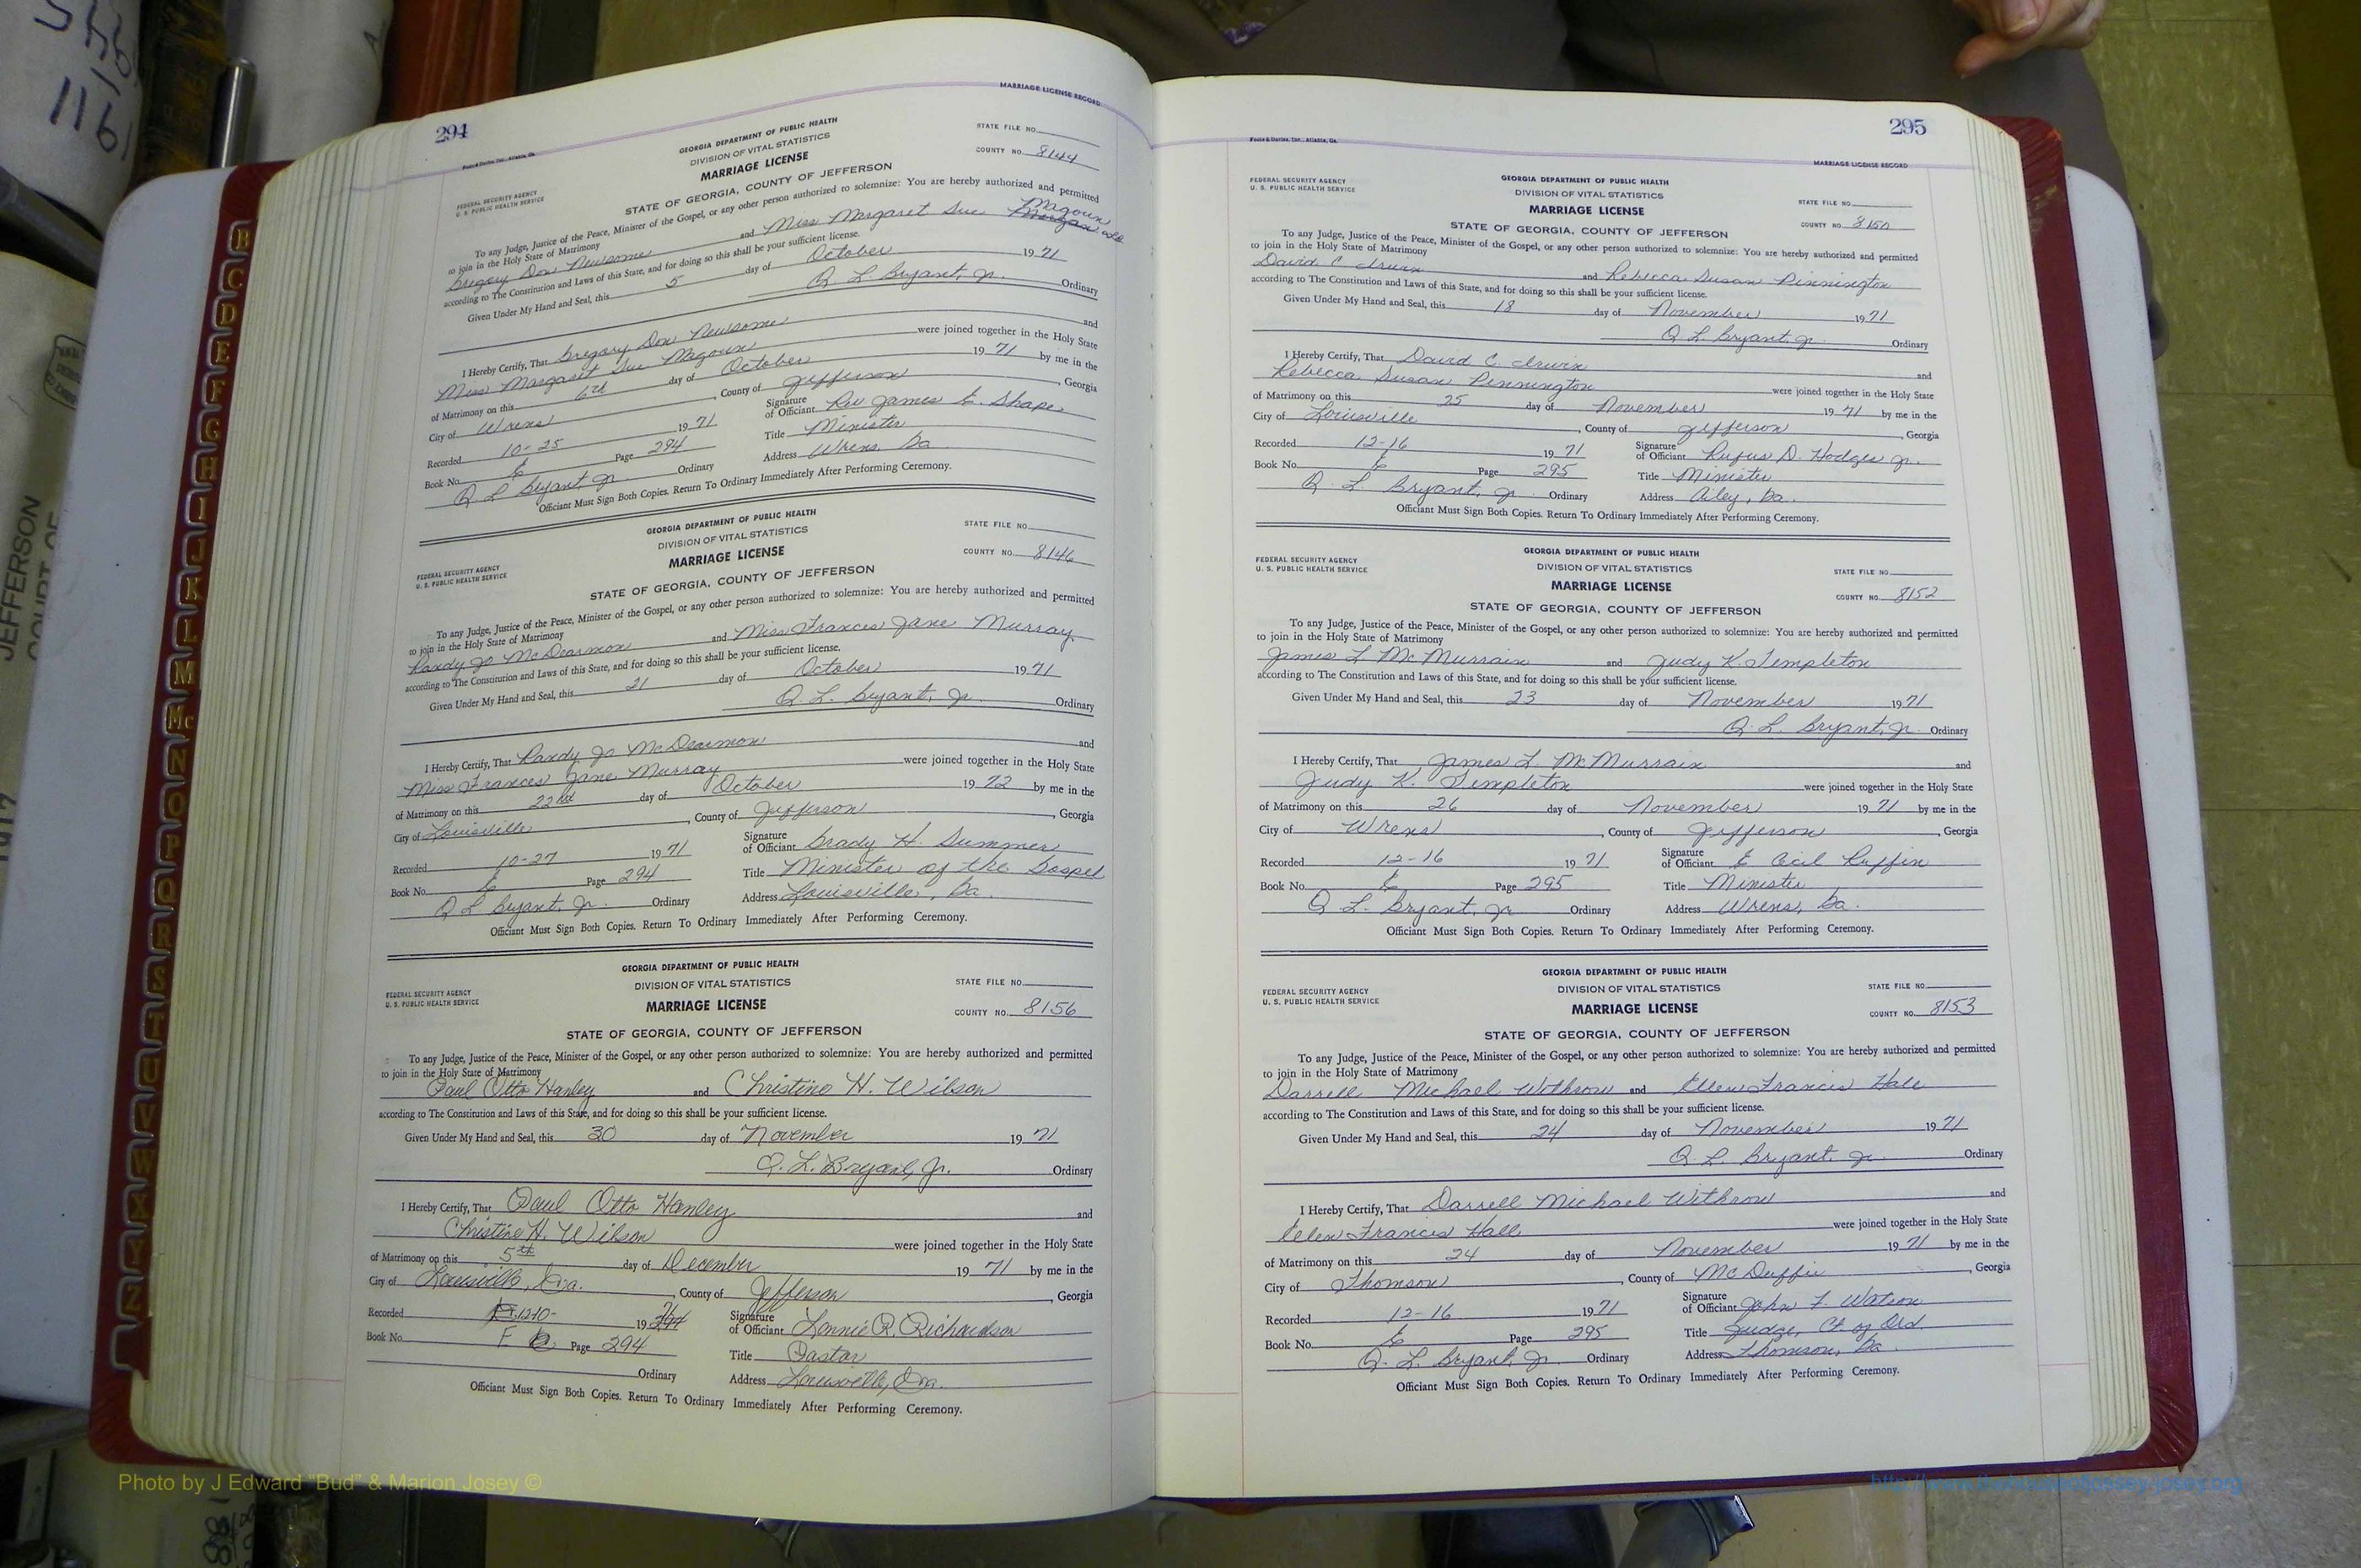 294
MARRIAGE LICENSE RECORD
Foote & Davies, Inc., Atlanta, Ga.
GEORGIA DEPARTMENT OF PUBLIC HEALTH
DIVISION OF VITAL STATISTICS
MARRIAGE LICENSE
STATE OF GEORGIA, COUNTY OF JEFFERSON
STATE FILE NO.
COUNTY NO. 8144
FEDERAL SECURITY AGENCY
U. S. PUBLIC HEALTH SERVICE
To any Judge, Justice of the Peace, Minister of the Gospel, or any other person authorized to solemnize: You are hereby authorized and permitted
to join in the Holy State of Matrimony
Gregory Don Newsome and Miss Margaret Sue Magoun
according to The Constitution and Laws of this State, and for doing so this shall be your sufficient license.
Given Under My Hand and Seal, this 5 day of October 1971
Q. L. Bryant, Jr. Ordinary
I Hereby Certify, That Gregory Don Newsome and
Miss Margaret Sue Magoun were joined together in the Holy State
of Matrimony on this 6th day of October 1971 by me in the
City of Wrens, County of Jefferson, Georgia
Recorded 10-25 1971 Signature of Officiant Rev James E. Shape
Book No. E Page 294 Title Minister
Q. L. Bryant, Jr. Ordinary Address Wrens, Ga
Officiant Must Sign Both Copies. Return To Ordinary Immediately After Performing Ceremony.
GEORGIA DEPARTMENT OF PUBLIC HEALTH
DIVISION OF VITAL STATISTICS
MARRIAGE LICENSE
STATE OF GEORGIA, COUNTY OF JEFFERSON
STATE FILE NO.
COUNTY NO. 8146
FEDERAL SECURITY AGENCY
U. S. PUBLIC HEALTH SERVICE
To any Judge, Justice of the Peace, Minister of the Gospel, or any other person authorized to solemnize: You are hereby authorized and permitted
to join in the Holy State of Matrimony
Randy Jo McDearmon and Miss Frances Jane Murray
according to The Constitution and Laws of this State, and for doing so this shall be your sufficient license.
Given Under My Hand and Seal, this 21 day of October 1971
Q. L. Bryant, Jr. Ordinary
I Hereby Certify, That Randy Jo McDearmon and
Miss Frances Jane Murray were joined together in the Holy State
of Matrimony on this 22nd day of October 1972 by me in the
City of Louisville, County of Jefferson, Georgia
Recorded 10-27 1971 Signature of Officiant Grady H. Summer
Book No. E Page 294 Title Minister of the Gospel
Q L Bryant, Jr. Ordinary Address Louisville, Ga.
Officiant Must Sign Both Copies. Return To Ordinary Immediately After Performing Ceremony.
GEORGIA DEPARTMENT OF PUBLIC HEALTH
DIVISION OF VITAL STATISTICS
MARRIAGE LICENSE
STATE OF GEORGIA, COUNTY OF JEFFERSON
STATE FILE NO.
COUNTY NO. 8156
FEDERAL SECURITY AGENCY
U. S. PUBLIC HEALTH SERVICE
To any Judge, Justice of the Peace, Minister of the Gospel, or any other person authorized to solemnize: You are hereby authorized and permitted
to join in the Holy State of Matrimony
Paul Otto Hanley and Christine H. Wilson
according to The Constitution and Laws of this State, and for doing so this shall be your sufficient license.
Given Under My Hand and Seal, this 30 day of November 1971
Q. L. Bryant, Jr. Ordinary
I Hereby Certify, That Paul Otto Hanley and
Christine H. Wilson were joined together in the Holy State
of Matrimony on this 5th day of December 1971 by me in the
City of Louisville, Ga., County of Jefferson, Georgia
Recorded 12-10- 1971 Signature of Officiant Lonnie R. Richardson
Book No. E Page 294 Title Pastor
Ordinary Address Louisville, Ga.
Officiant Must Sign Both Copies. Return To Ordinary Immediately After Performing Ceremony.
295
MARRIAGE LICENSE RECORD
Foote & Davies, Inc., Atlanta, Ga.
FEDERAL SECURITY AGENCY
U. S. PUBLIC HEALTH SERVICE
GEORGIA DEPARTMENT OF PUBLIC HEALTH
DIVISION OF VITAL STATISTICS
MARRIAGE LICENSE
STATE OF GEORGIA, COUNTY OF JEFFERSON
STATE FILE NO.
COUNTY NO. 8150
To any Judge, Justice of the Peace, Minister of the Gospel, or any other person authorized to solemnize: You are hereby authorized and permitted
to join in the Holy State of Matrimony
David C. Irwin and Rebecca Susan Pennington
according to The Constitution and Laws of this State, and for doing so this shall be your sufficient license.
Given Under My Hand and Seal, this 18 day of November 1971
Q L. Bryant, Jr. Ordinary
I Hereby Certify, That David C. Irwin and
Rebecca Susan Pennington were joined together in the Holy State
of Matrimony on this 25 day of November 1971 by me in the
City of Louisville, County of Jefferson, Georgia
Recorded 12-16 1971 Signature of Officiant Rufus D. Hodges Jr.
Book No. E Page 295 Title Minister
Q. L. Bryant, Jr. Ordinary Address Ailey, Ga.
Officiant Must Sign Both Copies. Return To Ordinary Immediately After Performing Ceremony.
FEDERAL SECURITY AGENCY
U. S. PUBLIC HEALTH SERVICE
GEORGIA DEPARTMENT OF PUBLIC HEALTH
DIVISION OF VITAL STATISTICS
MARRIAGE LICENSE
STATE OF GEORGIA, COUNTY OF JEFFERSON
STATE FILE NO.
COUNTY NO. 8152
To any Judge, Justice of the Peace, Minister of the Gospel, or any other person authorized to solemnize: You are hereby authorized and permitted
to join in the Holy State of Matrimony
James L. McMurrain and Judy K. Templeton
according to The Constitution and Laws of this State, and for doing so this shall be your sufficient license.
Given Under My Hand and Seal, this 23 day of November 1971
Q. L. Bryant, Jr. Ordinary
I Hereby Certify, That James L. McMurrain and
Judy K. Templeton were joined together in the Holy State
of Matrimony on this 26 day of November 1971 by me in the
City of Wrens, County of Jefferson, Georgia
Recorded 12-16 1971 Signature of Officiant E Cecil Ruffin
Book No. E Page 295 Title Minister
Q L. Bryant, Jr Ordinary Address Wrens, Ga.
Officiant Must Sign Both Copies. Return To Ordinary Immediately After Performing Ceremony.
FEDERAL SECURITY AGENCY
U. S. PUBLIC HEALTH SERVICE
GEORGIA DEPARTMENT OF PUBLIC HEALTH
DIVISION OF VITAL STATISTICS
MARRIAGE LICENSE
STATE OF GEORGIA, COUNTY OF JEFFERSON
STATE FILE NO.
COUNTY NO. 8153
To any Judge, Justice of the Peace, Minister of the Gospel, or any other person authorized to solemnize: You are hereby authorized and permitted
to join in the Holy State of Matrimony
Darrell Michael Withrow and Ellen Francis Hall
according to The Constitution and Laws of this State, and for doing so this shall be your sufficient license.
Given Under My Hand and Seal, this 24 day of November 1971
Q L. Bryant, Jr. Ordinary
I Hereby Certify, That Darrell Michael Withrow and
Ellen Francis Hall were joined together in the Holy State
of Matrimony on this 24 day of November 1971 by me in the
City of Thomson, County of McDuffie, Georgia
Recorded 12-16 1971 Signature of Officiant John F. Watson
Book No. E Page 295 Title Judge, Ct. of Ord.
Q. L. Bryant, Jr. Ordinary Address Thomson, Ga.
Officiant Must Sign Both Copies. Return To Ordinary Immediately After Performing Ceremony.
B
C
D
E
F
G
H
I
J
K
L
M
Mc
N
O
P
Q
R
S
T
U
V
W
X
Y
Z
JEFFERSON
COURT OF
Photo by J Edward "Bud" & Marion Josey ©